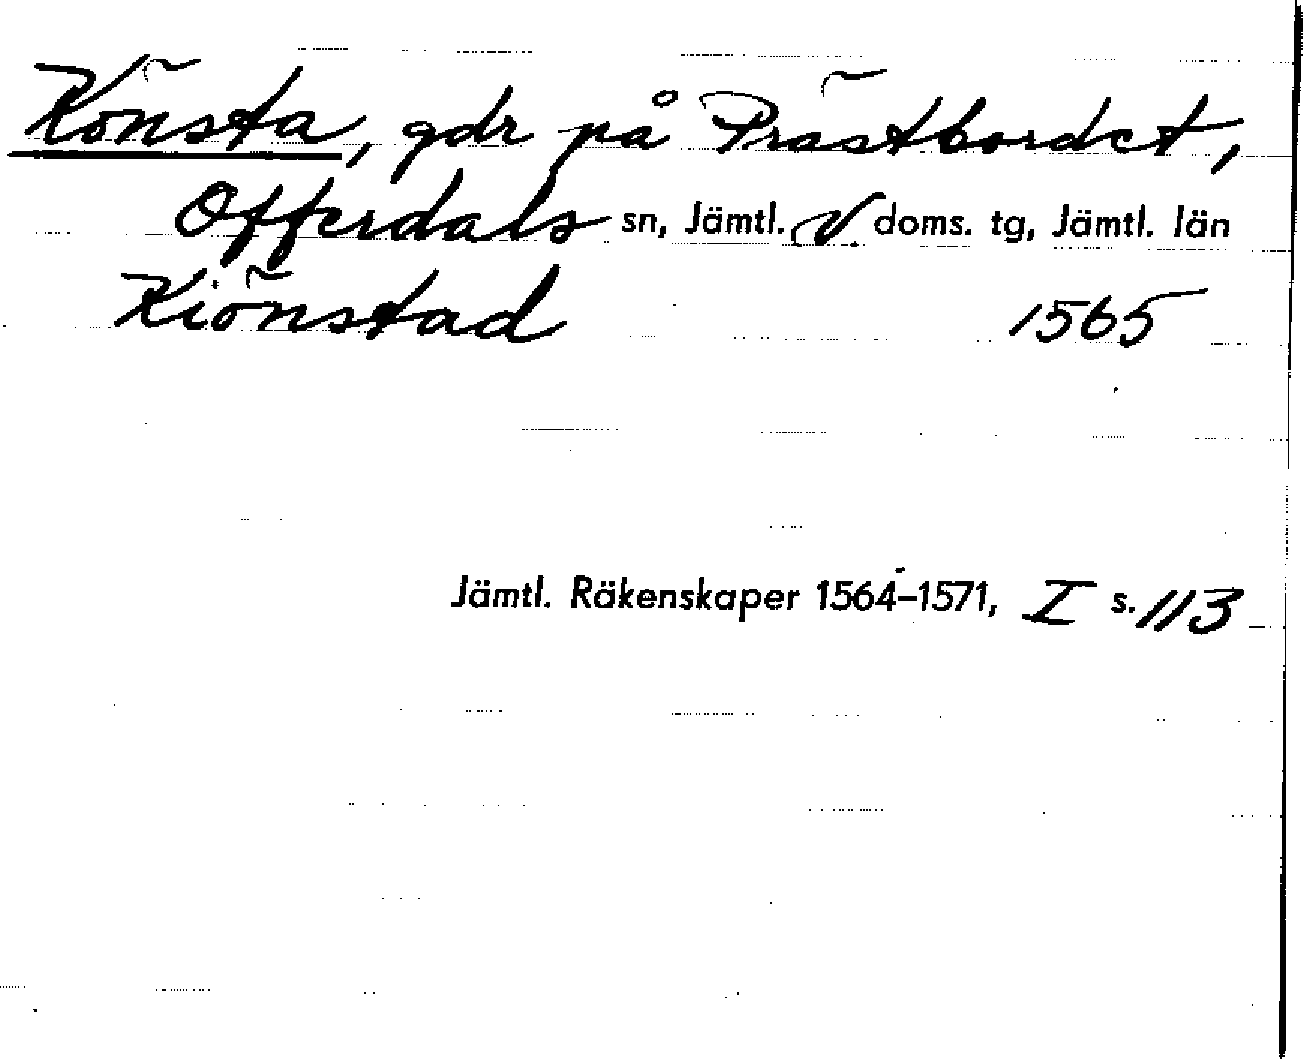 Könsta, gdr på Prästbordet,
Offerdals sn, Jämtl. V. doms. tg, Jämtl. län
Kiönstad 1565
Jämtl. Räkenskaper 1564-1571, I s. 113